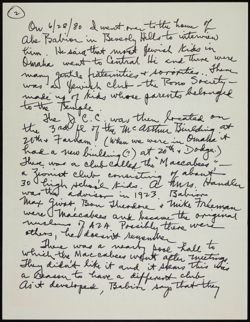 2
On 6/28/80 I went over to the home of
Abe Babior in Beverly Hills to interview
him. He said that most Jewish kids in
Omaha went to Central Hi and there were
many gentile fraternities & sororities. There
was a Jewish Club - the Rono Society -
made up of kids whose parents belonged
to the Temple.
The J.C.C. was then located on
the 3rd fl of the McArthur Building at
20th & Farnam. (When we were in Omaha it
had a new building(?) at 20th & Dodge.)
There was a club called the "Maccabees" -
a Zionist club consisting of about
30 high school kids. A Mrs. Handler
was the advisor in 1923. Babior
Max Givot Ben Theodore & Mike Freeman
were Maccabees and became the original
members of AZA. Possibly there were
others, he doesn't remember.
There was a nearby pool hall to
which the Maccabees went after meetings.
They didn't like it and it seems this was
a reason to have a different club.
As it developed, Babior says that they